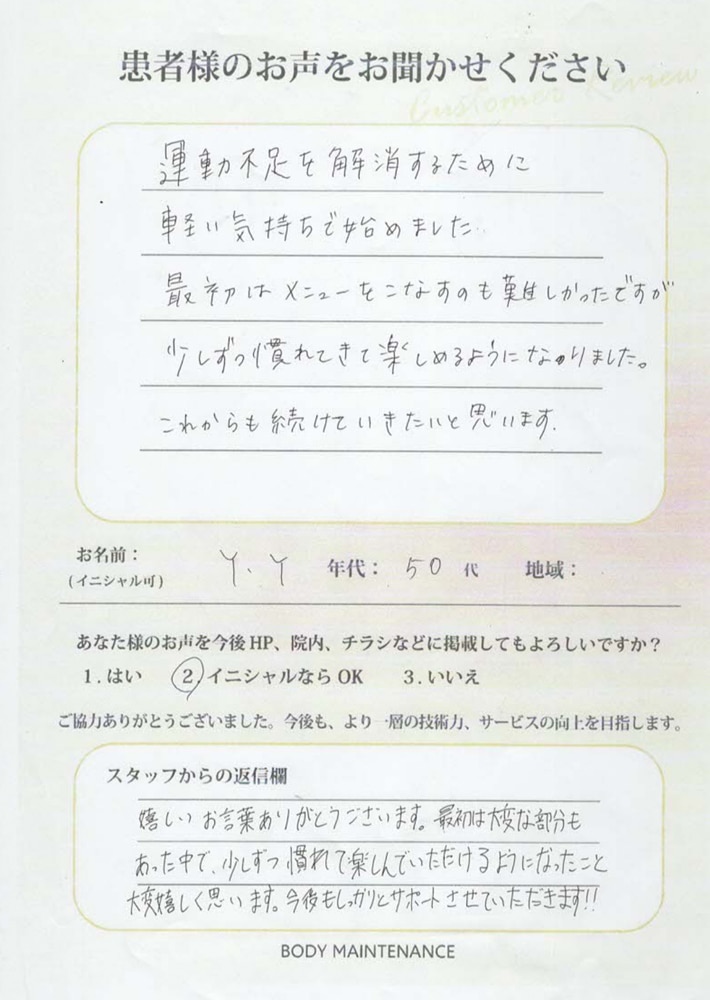 患者様のお声をお聞かせください
Customer Review
運動不足を解消するために
軽い気持ちで始めました
最初はメニューをこなすのも難しかったですが
少しずつ慣れてきて楽しめるようになりました。
これからも続けていきたいと思います.
お名前：
(イニシャル可)
Y.Y 年代：50代 地域：
あなた様のお声を今後HP、院内、チラシなどに掲載してもよろしいですか？
1.はい 2.イニシャルならOK 3.いいえ
ご協力ありがとうございました。今後も、より一層の技術力、サービスの向上を目指します。
スタッフからの返信欄
嬉しいお言葉ありがとうございます。最初は大変な部分も
あった中で、少しずつ慣れて楽しんでいただけるようになったこと
大変嬉しく思います。今後もしっかりとサポートさせていただきます!!
BODY MAINTENANCE